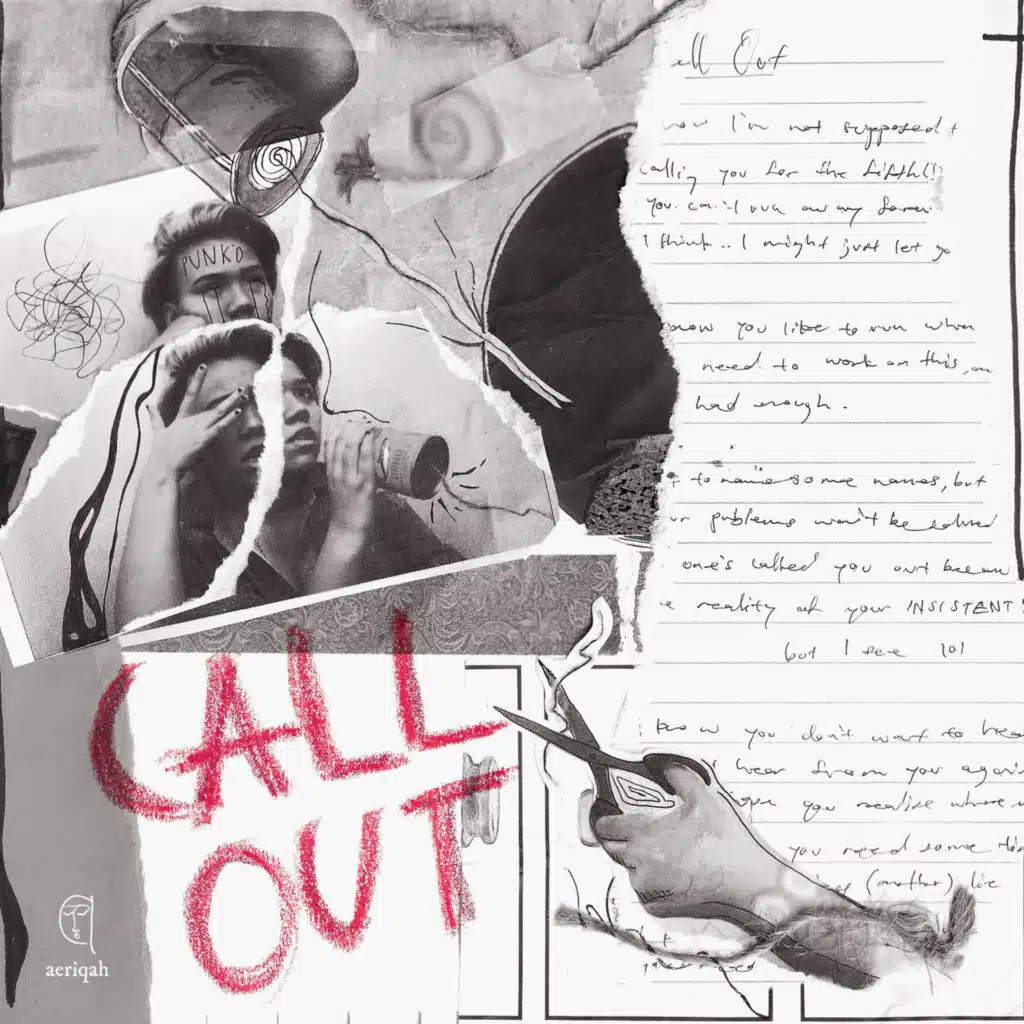 PUNK'D
CALL
OUT
aeriqah
Out
I'm not supposed t
calling you for the fifth
You can't run away
I think.. I might just let go
you like to run when
need to work on this,
had enough.
to name some names, but
problems won't be solved
one's called you out
reality of your INSISTENT
but I see lol
know you don't want to hea
hear from you again
you realise where
you need some
(another) lie